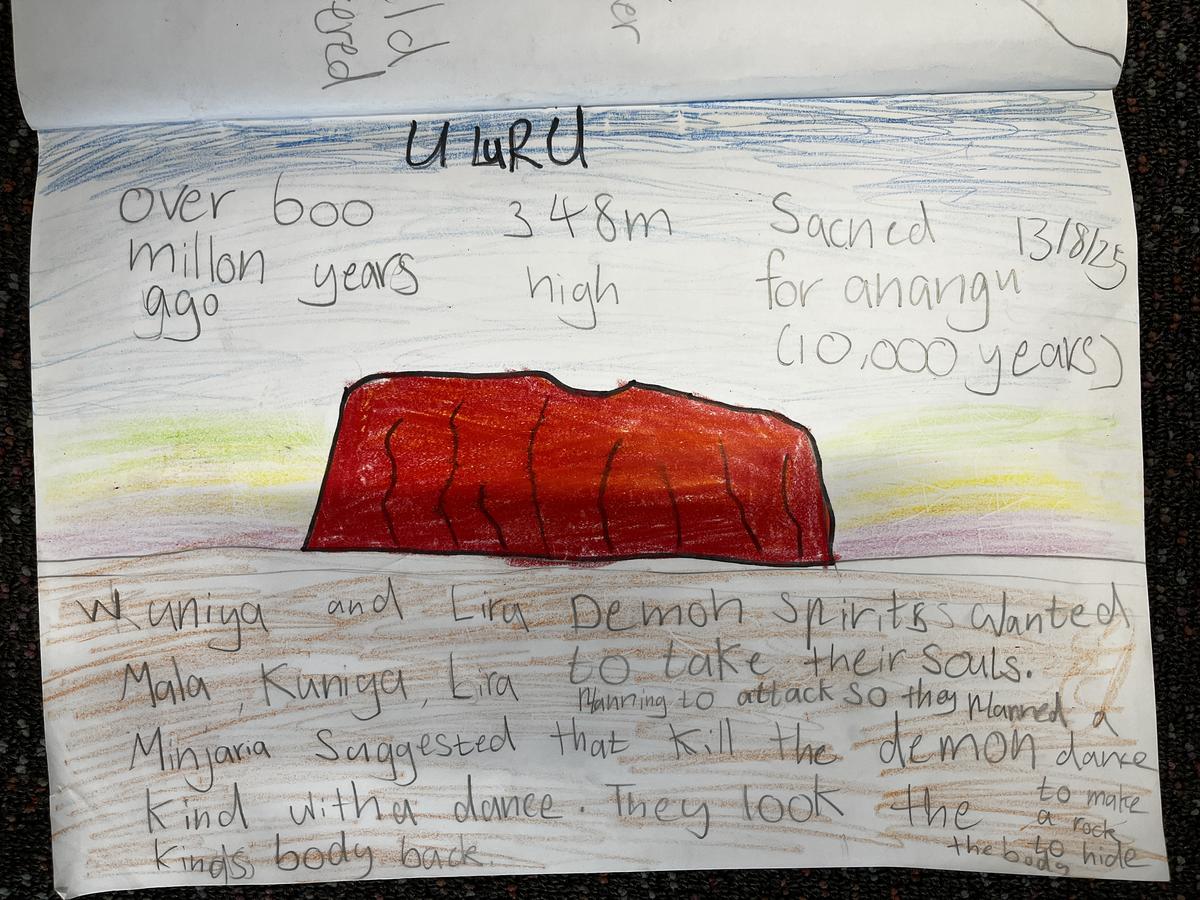 ULuRU
over 600
millon years
ago
348m
high
Sacned
for anangu
(10,000 years)
13/8/25
Wuniya and Lira Demon spirits wanted
to take their souls.
Mala, Kuniya, Lira
Planning to attack so they planned a
dance
to make
a rock
to hide
the body
Minjaria Suggested that kill the demon
kind with a dance. They look the
kinds body back.
er
ld
ered